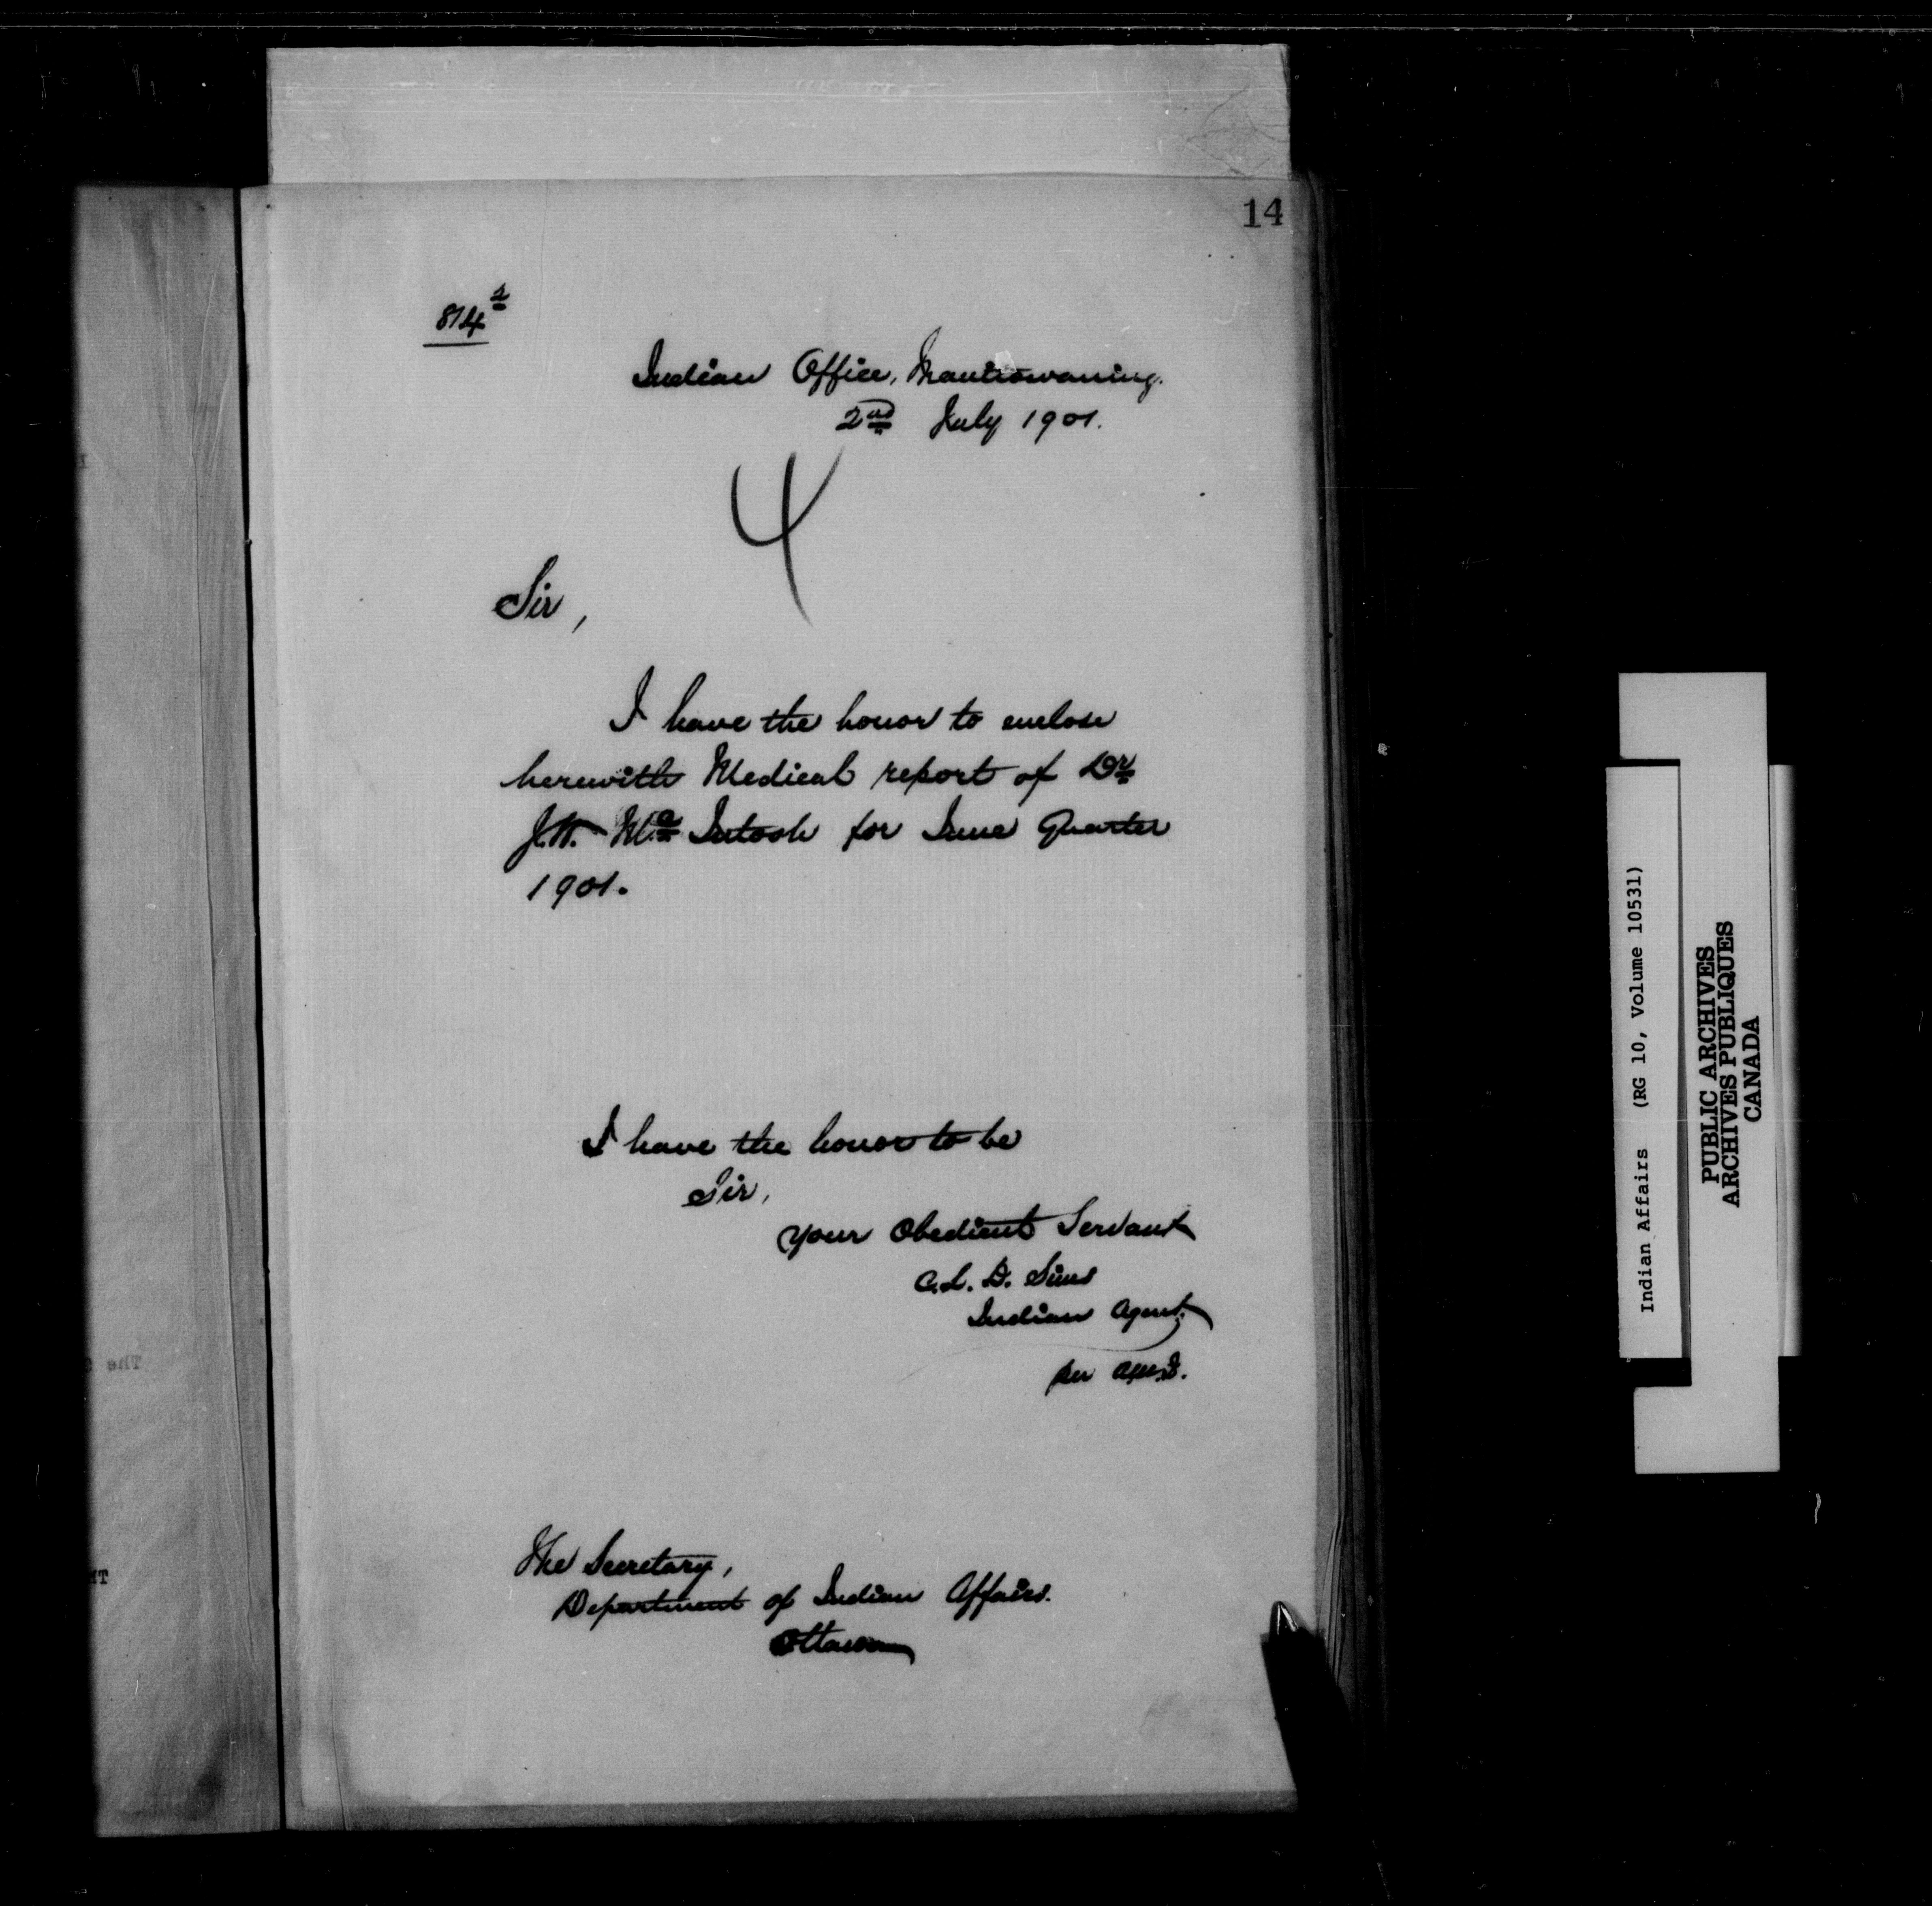 14
814²
Indian Office, Manitowaning.
2nd July 1901.
4
Sir,
I have the honor to enclose
herewith Medical report of Dr
J.W. Mc Intosh for June Quarter
1901.
I have the honor to be
Sir,
Your Obedient Servant
C.L.D. Sims
Indian Agent.
per
The Secretary,
Department of Indian Affairs.
Ottawa
Indian Affairs (RG 10, Volume 10531)
PUBLIC ARCHIVES
ARCHIVES PUBLIQUES
CANADA